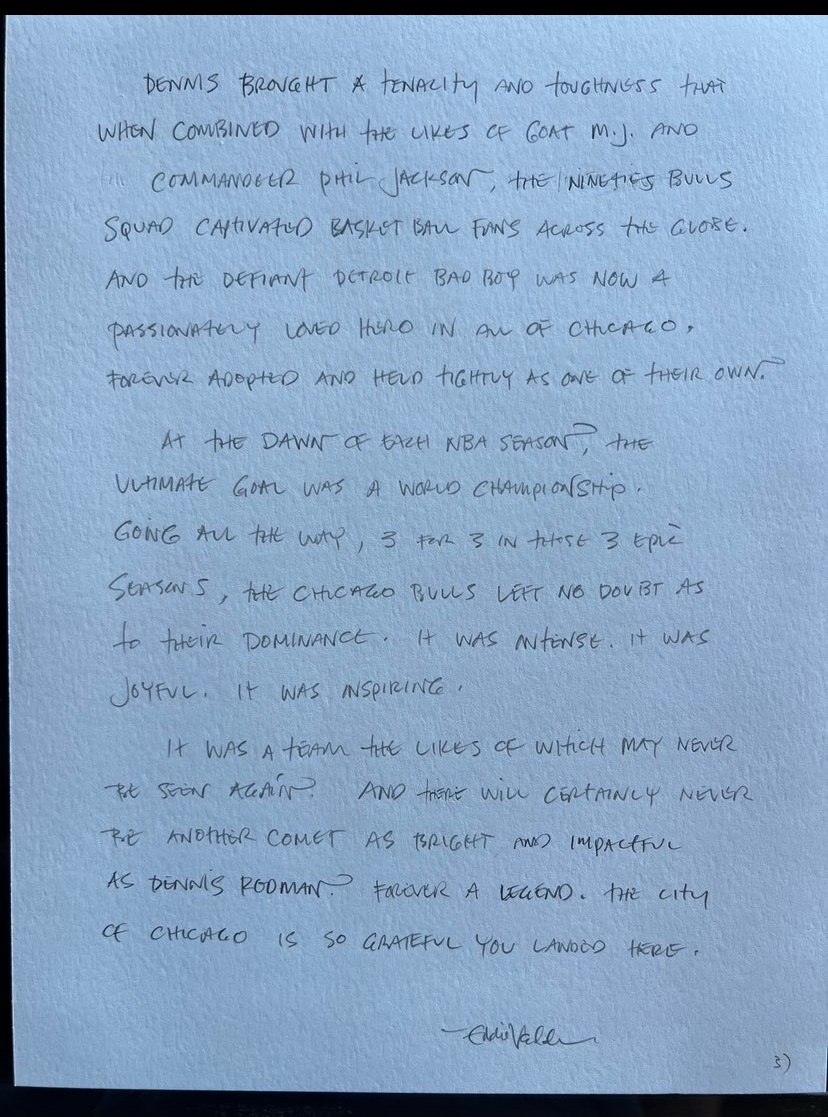 DENNIS BROUGHT A TENACITY AND TOUGHNESS THAT
WHEN COMBINED WITH THE LIKES OF GOAT M.J. AND
COMMANDEER PHIL JACKSON, THE NINETIES BULLS
SQUAD CAPTIVATED BASKETBALL FANS ACROSS THE GLOBE.
AND THE DEFIANT DETROIT BAD BOY WAS NOW A
PASSIONATELY LOVED HERO IN ALL OF CHICAGO,
FOREVER ADOPTED AND HELD TIGHTLY AS ONE OF THEIR OWN.
AT THE DAWN OF EACH NBA SEASON, THE
ULTIMATE GOAL WAS A WORLD CHAMPIONSHIP.
GOING ALL THE WAY, 3 FOR 3 IN THOSE 3 EPIC
SEASONS, THE CHICAGO BULLS LEFT NO DOUBT AS
TO THEIR DOMINANCE. IT WAS INTENSE. IT WAS
JOYFUL. IT WAS INSPIRING.
IT WAS A TEAM THE LIKES OF WHICH MAY NEVER
BE SEEN AGAIN. AND THERE WILL CERTAINLY NEVER
BE ANOTHER COMET AS BRIGHT AND IMPACTFUL
AS DENNIS RODMAN. FOREVER A LEGEND. THE CITY
OF CHICAGO IS SO GRATEFUL YOU LANDED HERE.
—Eddie Vedder
3)